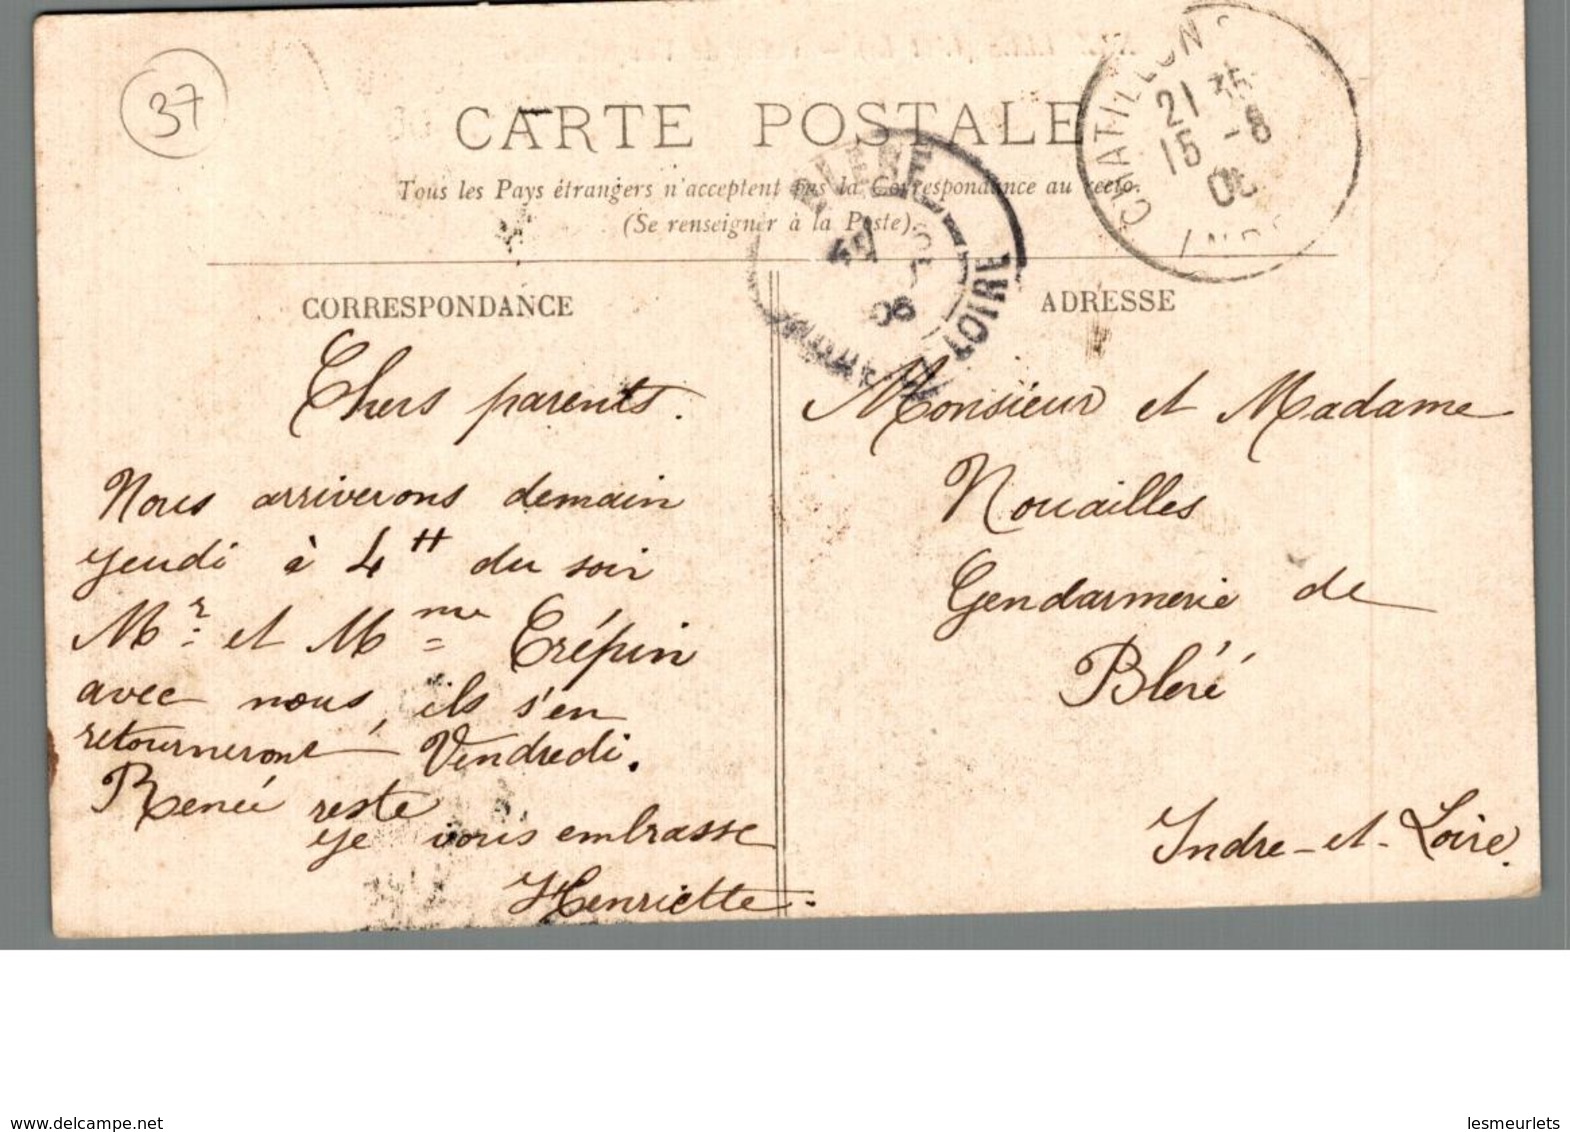 37
CARTE POSTALE
Tous les Pays étrangers n'acceptent pas la Correspondance au recto.
(Se renseigner à la Poste).
CHATILLON-S
21 35
15 -8
INDRE
LOIRE
CORRESPONDANCE
Chers parents.
Nous arriverons demain
jeudi à 4 H du soir
Mr et Mme Crépin
avec nous, ils s'en
retourneront Vendredi.
Renée reste
je vous embrasse
Henriette.
ADRESSE
Monsieur et Madame
Nouailles
Gendarmerie de
Bléré
Indre-et-Loire.
www.delcampe.net
lesmeurlets